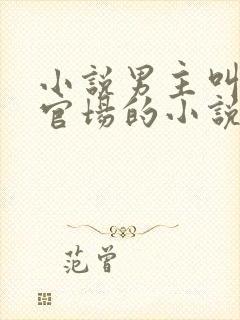 小説男主叫
官場的小説
范曾